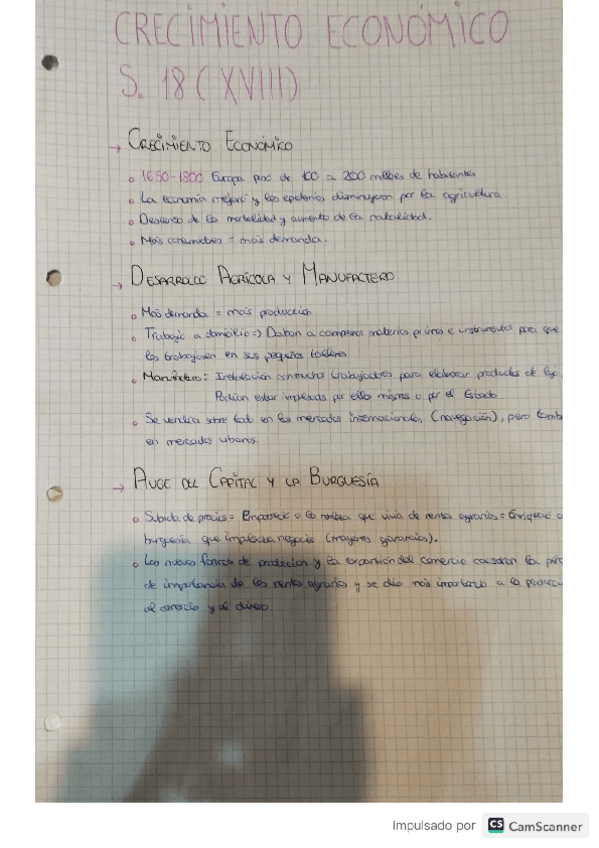 CRECIMIENTO ECONÓMICO
S. 18 (XVIII)
→ CRECIMIENTO ECONÓMICO
1650-1800 Europa pasó de 100 a 200 millones de habitantes
La economía mejoró y las epidemias disminuyeron por la agricultura.
Descenso de la mortalidad y aumento de la natalidad.
Más consumidores = más demanda.
→ DESARROLLO AGRÍCOLA Y MANUFACTERO
Más demanda = más producción
Trabajo a domicilio => Daban a campesinos materias primas e instrumentos para que
los trabajasen en sus pequeños talleres
Manufactura: Instalación con muchos trabajadores para elaborar productos de lujo.
Podían estar impulsadas por ellos mismos o por el Estado.
Se vendía sobre todo en los mercados internacionales, (navegación), pero tamb
en mercados urbanos.
→ AUGE DEL CAPITAL Y LA BURGUESÍA
Subida de precios = Empobreció a la nobleza que vivía de rentas agrarias = Enriqueció a
burguesía que impulsaba negocios (mayores ganancias).
Las nuevas formas de producción y la expansión del comercio causaron la pérd
de importancia de las rentas agrarias y se dio más importancia a la producc
al comercio y al dinero.
Impulsado por CS CamScanner